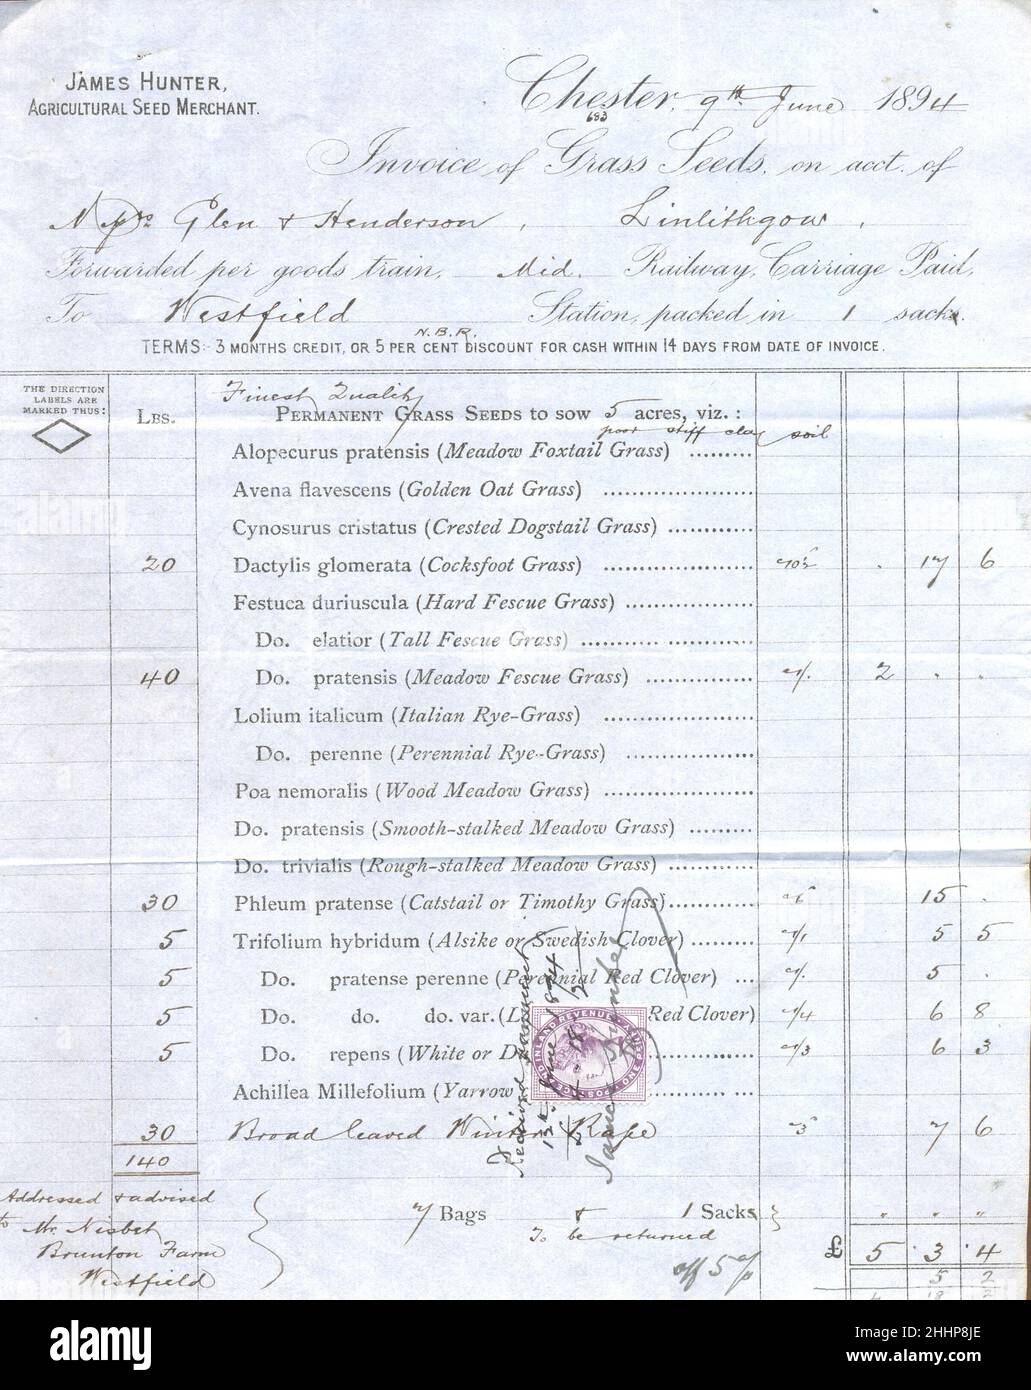 JAMES HUNTER,
AGRICULTURAL SEED MERCHANT.
Chester, 9th June 1894
683
Invoice of Grass Seeds, on acct. of
Glen & Henderson, Linlithgow,
Forwarded per goods train, Mid. Railway, Carriage Paid,
To Westfield Station, packed in 1 sack.
N.B.R.
TERMS: 3 MONTHS CREDIT, OR 5 PER CENT DISCOUNT FOR CASH WITHIN 14 DAYS FROM DATE OF INVOICE.
THE DIRECTION
LABELS ARE
MARKED THUS:
LBS.
Finest Quality
PERMANENT GRASS SEEDS to sow 5 acres, viz. :
poor stiff clay soil
Alopecurus pratensis (Meadow Foxtail Grass) .........
Avena flavescens (Golden Oat Grass) .....................
Cynosurus cristatus (Crested Dogstail Grass) ............
20 Dactylis glomerata (Cocksfoot Grass) ..................... 10½ . 17 6
Festuca duriuscula (Hard Fescue Grass) ..................
Do. elatior (Tall Fescue Grass) ........................
40 Do. pratensis (Meadow Fescue Grass) ............... 1/. 2 . .
Lolium italicum (Italian Rye-Grass) .....................
Do. perenne (Perennial Rye-Grass) ..................
Poa nemoralis (Wood Meadow Grass) .....................
Do. pratensis (Smooth-stalked Meadow Grass) .........
Do. trivialis (Rough-stalked Meadow Grass) ............
30 Phleum pratense (Catstail or Timothy Grass)............ 6 15 .
5 Trifolium hybridum (Alsike or Swedish Clover) ......... 1/1 5 5
5 Do. pratense perenne (Perennial Red Clover) ... 1/. 5 .
5 Do. do. do. var. (L Red Clover) 1/4 6 8
5 Do. repens (White or D ............... 1/3 6 3
Achillea Millefolium (Yarrow ............
30 Broad leaved Winter Rape 3 7 6
140
INLAND REVENUE
POSTAGE
ONE PENNY
Received payment
13th June 1894
James Hunter
Addressed & advised
to Mr. Nisbet
Brunton Farm
Westfield
7 Bags & 1 Sack } " " "
To be returned
£ 5 . 3 . 4
off 5 %
5 2
alamy
Image ID: 2HHP8JE
www.alamy.com